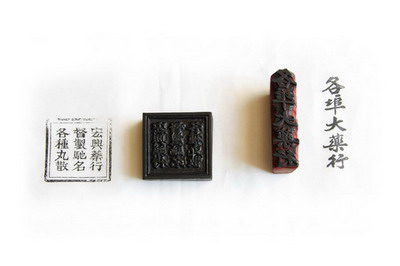 宏興藥行
督製馳名
各種丸散
各埠大藥行